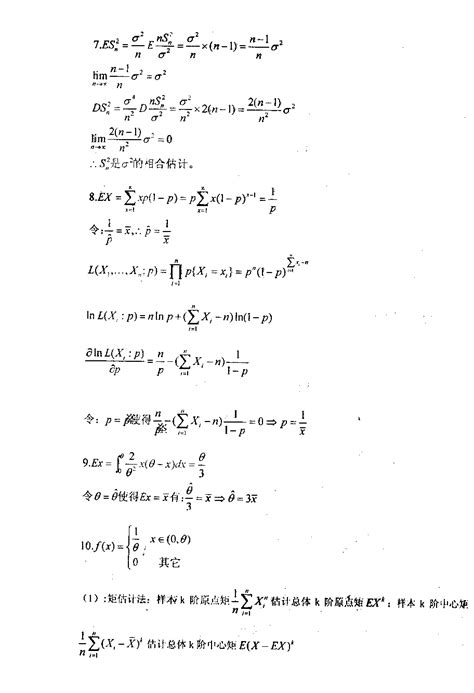 7.ES_n^2 = \frac{σ^2}{n} E \frac{nS_n^2}{σ^2} = \frac{σ^2}{n} × (n−1) = \frac{n−1}{n} σ^2
\lim_{n→∞} \frac{n−1}{n} σ^2 = σ^2
DS_n^2 = \frac{σ^4}{n^2} D \frac{nS_n^2}{σ^2} = \frac{σ^2}{n^2} × 2(n−1) = \frac{2(n−1)}{n^2} σ^2
\lim_{n→∞} \frac{2(n−1)}{n^2} σ^2 = 0
∴ S_n^2是σ^2的相合估计。
8.EX = \sum_{x=1}^{∞} xp(1−p) = p \sum_{x=1}^{∞} x(1−p)^{x−1} = \frac{1}{p}
令: \frac{1}{\hat{p}} = \bar{x}, ∴ \hat{p} = \frac{1}{\bar{x}}
L(X_1,…,X_n; p) = \prod_{i=1}^{n} p{X_i = x_i} = p^n (1−p)^{\sum_{i=1}^{n} x_i − n}
ln L(X_i : p) = n ln p + (\sum_{i=1}^{n} X_i − n) ln(1−p)
\frac{∂ ln L(X_i : p)}{∂p} = \frac{n}{p} − (\sum_{i=1}^{n} X_i − n) \frac{1}{1−p}
令: p = 使得 − (\sum_{i=1}^{n} X_i − n) \frac{1}{1−p} = 0 ⇒ p = \frac{1}{\bar{x}}
9.Ex = \int_0^θ \frac{2}{θ^2} x(θ − x)dx = \frac{θ}{3}
令θ = \hat{θ}使得Ex = \bar{x} 有: \frac{\hat{θ}}{3} = \bar{x} ⇒ \hat{θ} = 3\bar{x}
10.f(x) = { \frac{1}{θ}, x∈(0,θ)
0 其它
(1) :矩估计法: 样本 k 阶原点矩 \frac{1}{n} \sum_{i=1}^{n} X_i^n 估计总体 k 阶原点矩 EX^k ; 样本 k 阶中心矩
\frac{1}{n} \sum_{i=1}^{n} (X_i − \bar{X})^k 估计总体 k 阶中心矩 E(X − EX)^k